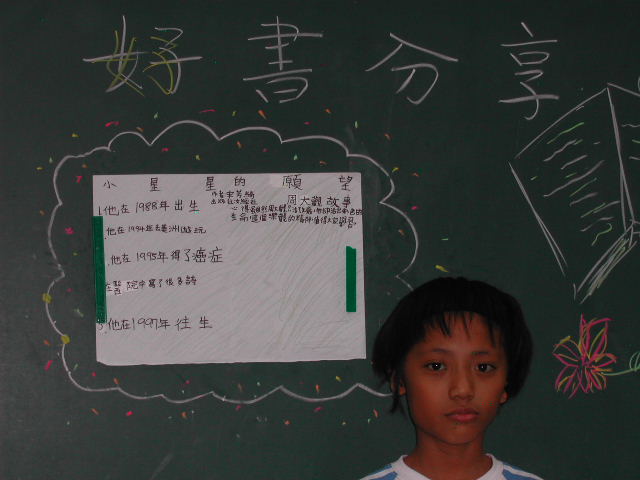 好書分享
小星星的願望
作者宋芳綺
周大觀故事
1.他在1988年出生
他在1994年去美洲遊玩
他在1995年得了癌症
在醫院中寫了很多詩
他在1997年往生